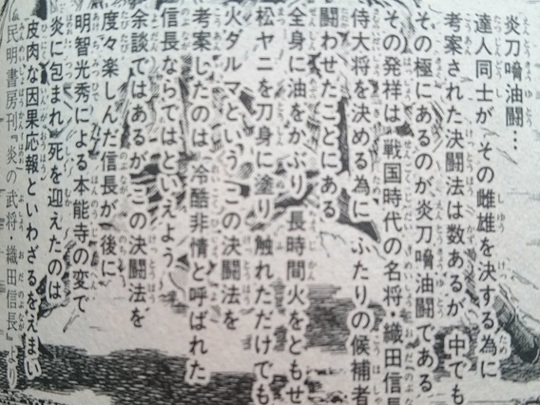 炎刀噏油闘…
達人同士が その雌雄を決する為に
考案された決闘法は数あるが 中でも
その極にあるのが炎刀噏油闘である
その発祥は 戦国時代の名将・織田信長
侍大将を決める為に ふたりの候補者
闘わせたことにある
全身に油をかぶり 長時間火をともせ
松ヤニを刀身に塗り 触れただけでも
火ダルマという この決闘法を
考案したのは 冷酷非情と呼ばれた
信長ならではといえよう
余談ではあるが この決闘法を
度々楽しんだ信長が 後に
明智光秀による本能寺の変で
炎に包まれ 死を迎えたのは
皮肉な因果応報といわざるをえまい
民明書房刊『炎の武将 織田信長』より